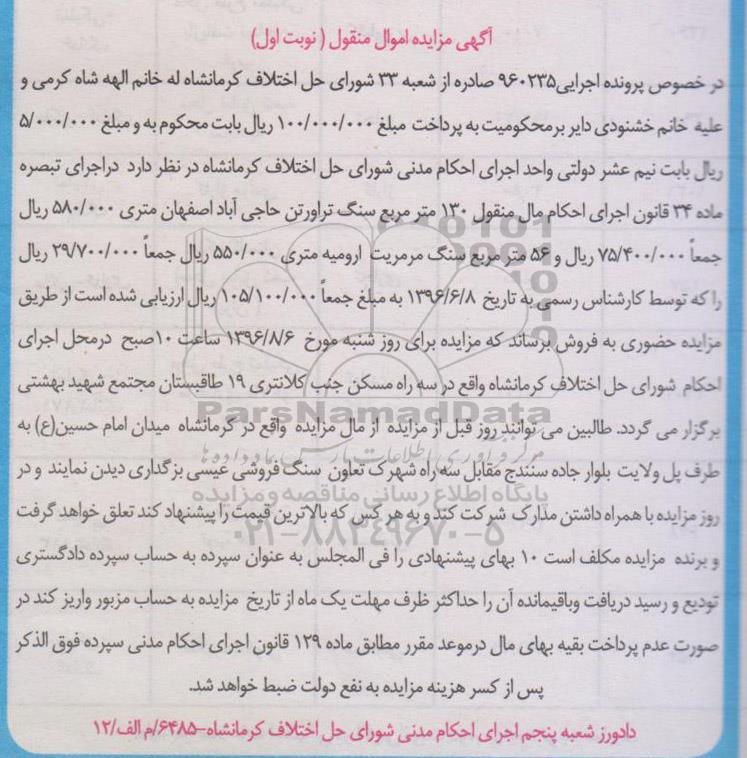 آگهی مزایده اموال منقول ( نوبت اول)
در خصوص پرونده اجرایی۹۶۰۲۳۵ صادره از شعبه ۳۳ شورای حل اختلاف کرمانشاه له خانم الهه شاه کرمی و
علیه خانم خشنودی دایر بر محکومیت به پرداخت مبلغ ۱۰۰/۰۰۰/۰۰۰ ریال بابت محکوم به و مبلغ ۵/۰۰۰/۰۰۰
ریال بابت نیم عشر دولتی واحد اجرای احکام مدنی شورای حل اختلاف کرمانشاه در نظر دارد دراجرای تبصره
ماده ۳۴ قانون اجرای احکام مال منقول ۱۳۰ متر مربع سنگ تراورتن حاجی آباد اصفهان متری ۵۸۰/۰۰۰ ریال
جمعاً ۷۵/۴۰۰/۰۰۰ ریال و ۵۶ متر مربع سنگ مرمریت ارومیه متری ۵۵۰/۰۰۰ ریال جمعاً ۲۹/۷۰۰/۰۰۰ ریال
را که توسط کارشناس رسمی به تاریخ ۱۳۹۶/۶/۸ به مبلغ جمعاً ۱۰۵/۱۰۰/۰۰۰ ریال ارزیابی شده است از طریق
مزایده حضوری به فروش برساند که مزایده برای روز شنبه مورخ ۱۳۹۶/۸/۶ ساعت ۱۰صبح درمحل اجرای
احکام شورای حل اختلاف کرمانشاه واقع در سه راه مسکن جنب کلانتری ۱۹ طاقبستان مجتمع شهید بهشتی
برگزار می گردد. طالبین می توانند روز قبل از مزایده از مال مزایده واقع در کرمانشاه میدان امام حسین(ع) به
طرف پل ولایت بلوار جاده سنندج مقابل سه راه شهرک تعاون سنگ فروشی عیسی بزگداری دیدن نمایند و در
روز مزایده با همراه داشتن مدارک شرکت کند و به هر کس که بالاترین قیمت را پیشنهاد کند تعلق خواهد گرفت
و برنده مزایده مکلف است ۱۰ بهای پیشنهادی را فی المجلس به عنوان سپرده به حساب سپرده دادگستری
تودیع و رسید دریافت وباقیمانده آن را حداکثر ظرف مهلت یک ماه از تاریخ مزایده به حساب مزبور واریز کند در
صورت عدم پرداخت بقیه بهای مال درموعد مقرر مطابق ماده ۱۲۹ قانون اجرای احکام مدنی سپرده فوق الذکر
پس از کسر هزینه مزایده به نفع دولت ضبط خواهد شد.
دادورز شعبه پنجم اجرای احکام مدنی شورای حل اختلاف کرمانشاه–۶۴۸۵/م الف/۱۲
ParsNamadData
مرکز فرآوری اطلاعات پارس نماد داده ها
پایگاه اطلاع رسانی مناقصه و مزایده
۰۲۱-۸۸۳۴۹۶۷۰-۵